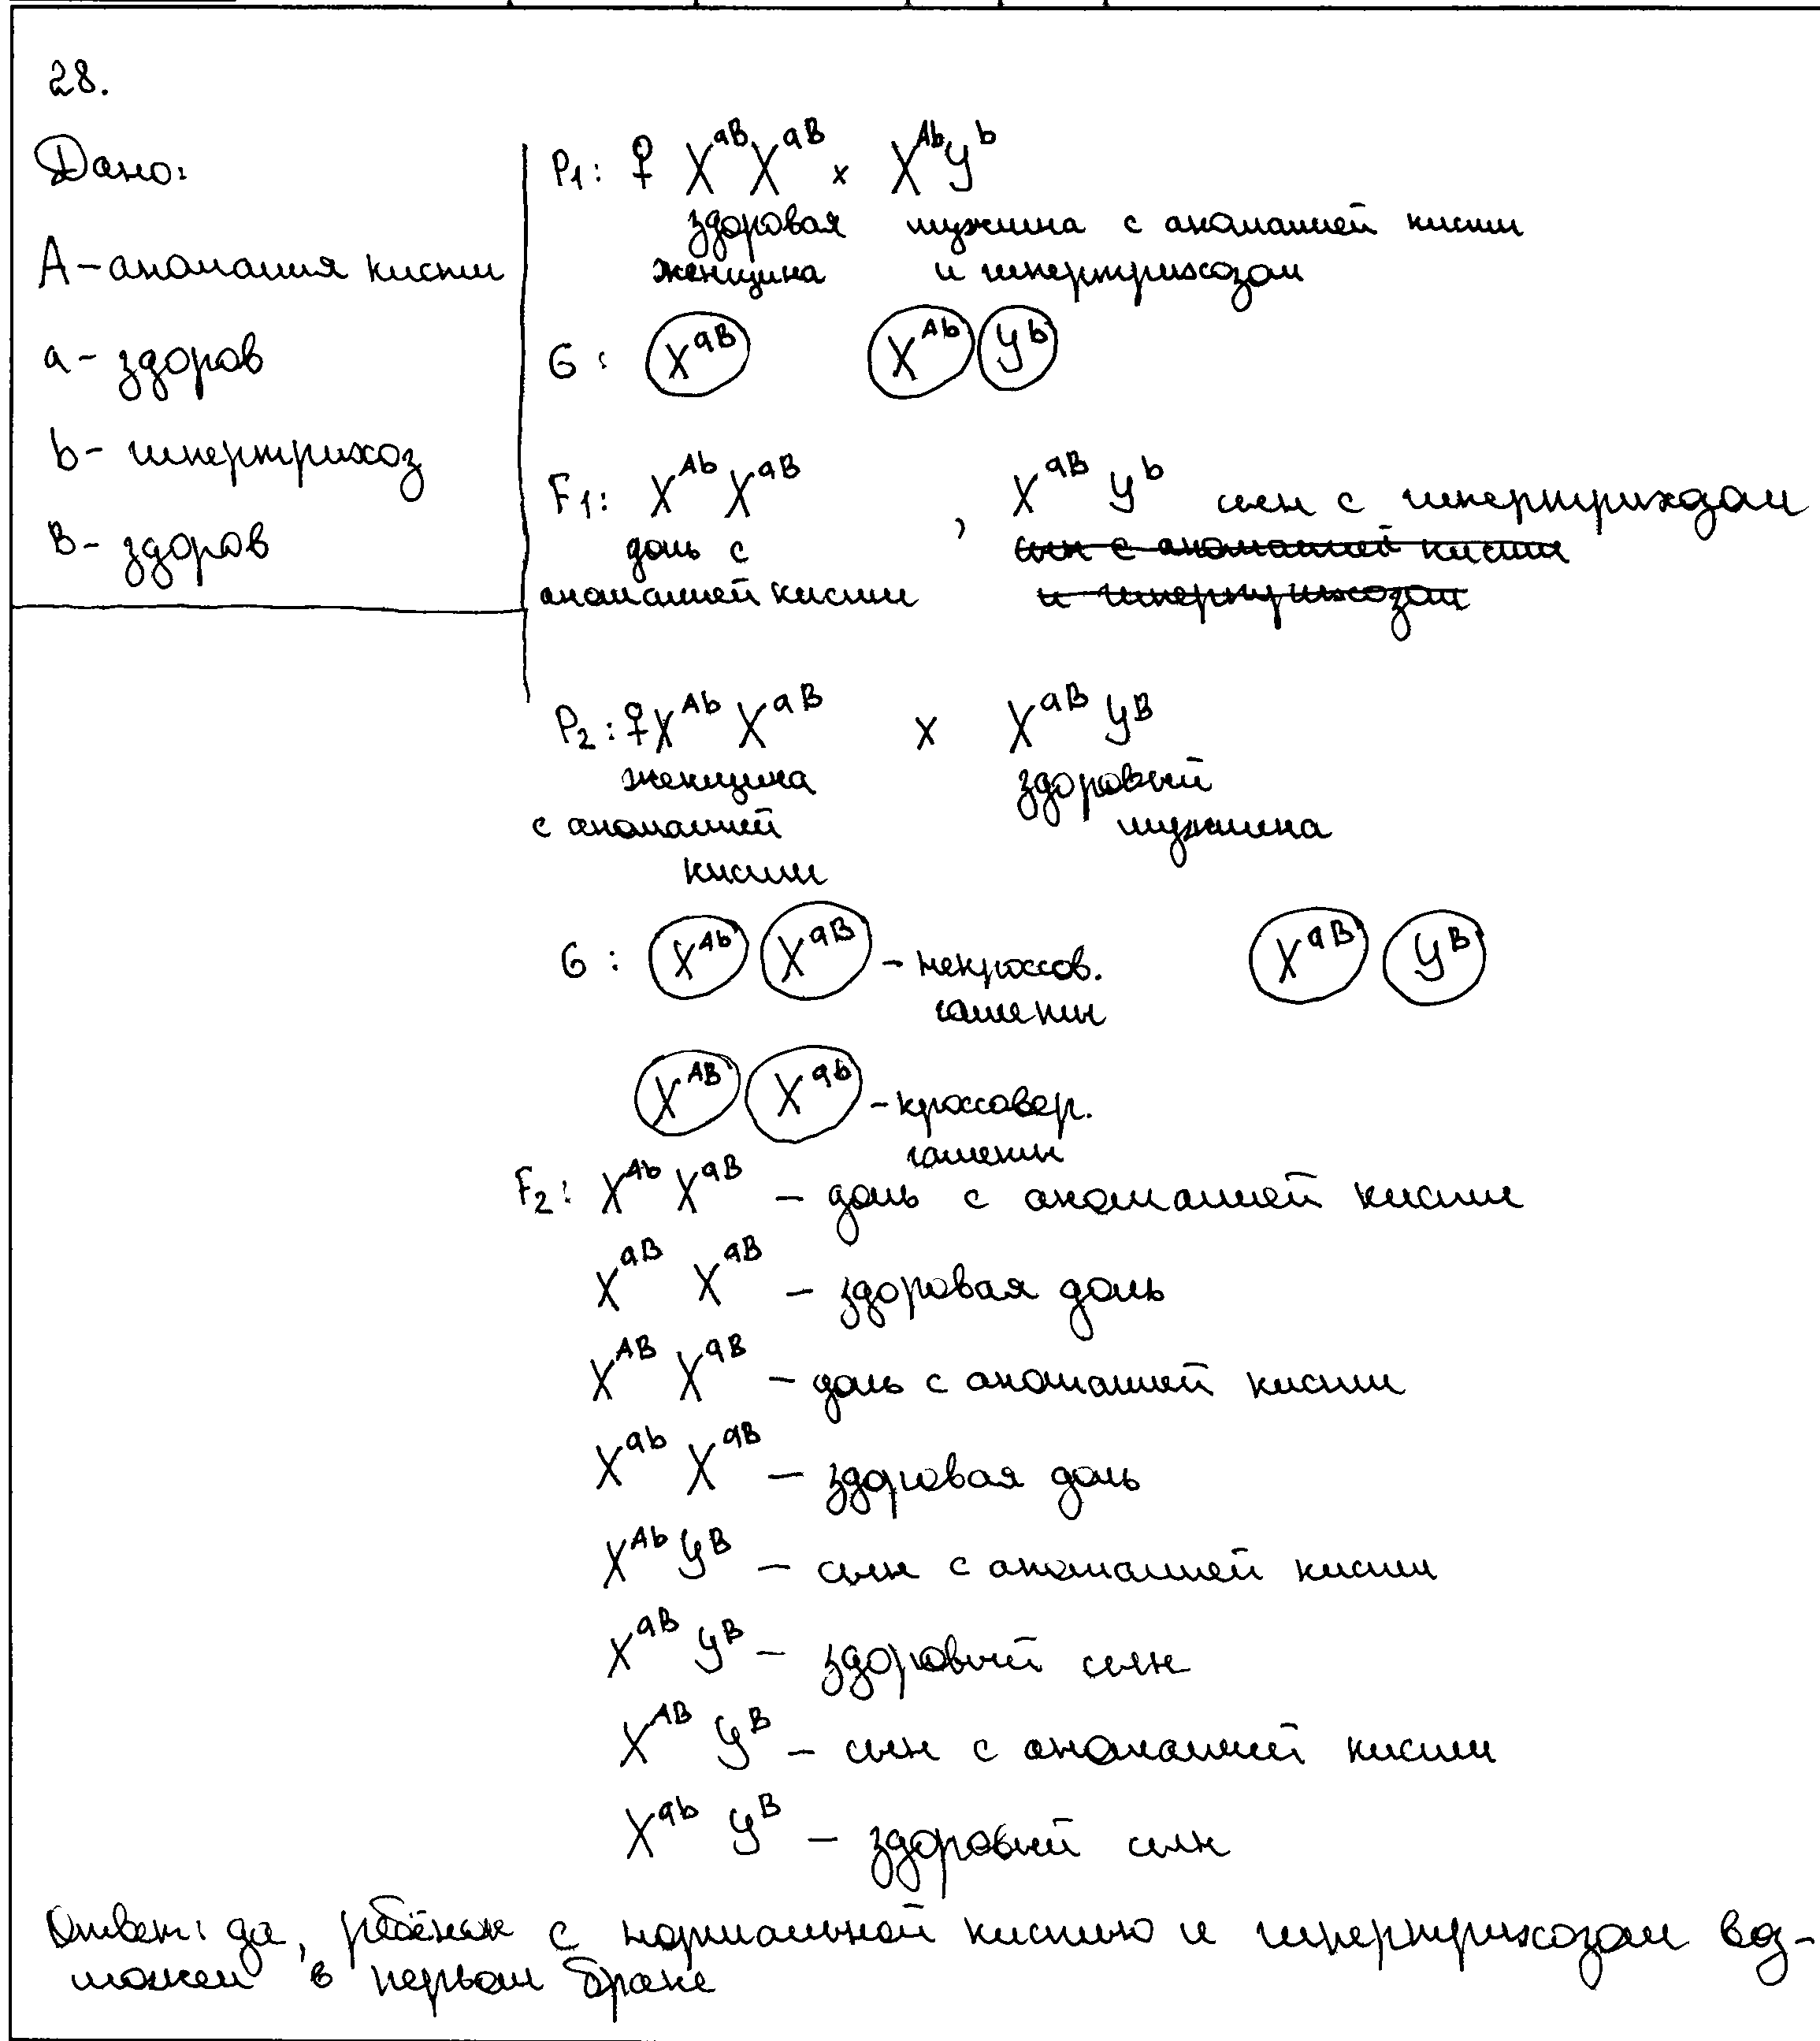 28.
Дано:
A – аномалия кисти
a – здоров
b – гипертрихоз
B – здоров
P₁: ♀ XᵃᴮXᵃᴮ × XᴬᵇYᵇ
здоровая мужчина с аномалией кисти
женщина и гипертрихозом
G: Xᵃᴮ Xᴬᵇ Yᵇ
F₁: XᴬᵇXᵃᴮ , XᵃᴮYᵇ сын с гипертрихозом
дочь с сын с аномалией кисти
аномалией кисти и гипертрихозом
P₂: ♀XᴬᵇXᵃᴮ × XᵃᴮYᴮ
женщина здоровый
с аномалией мужчина
кисти
G: Xᴬᵇ Xᵃᴮ – некроссов. Xᵃᴮ Yᴮ
гаметы
Xᴬᴮ Xᵃᵇ – кроссовер.
гаметы
F₂: XᴬᵇXᵃᴮ – дочь с аномалией кисти
Xᵃᴮ Xᵃᴮ – здоровая дочь
Xᴬᴮ Xᵃᴮ – дочь с аномалией кисти
Xᵃᵇ Xᵃᴮ – здоровая дочь
XᴬᵇYᴮ – сын с аномалией кисти
Xᵃᴮ Yᴮ – здоровый сын
Xᴬᴮ Yᴮ – сын с аномалией кисти
Xᵃᵇ Yᴮ – здоровый сын
Ответ: да, ребёнок с нормальной кистью и гипертрихозом воз-
можен в первом браке